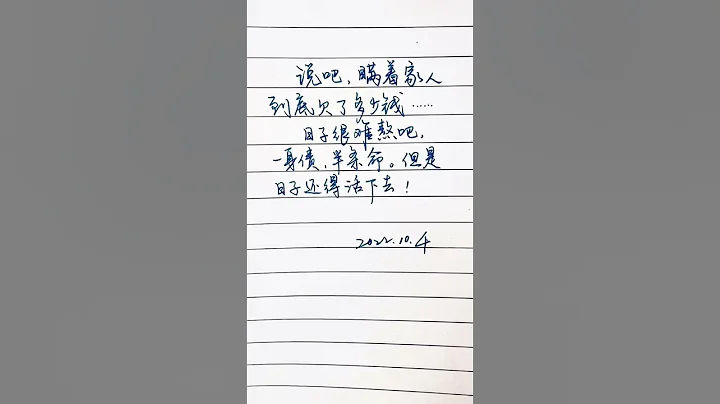 说吧，瞒着家人
到底欠了多少钱……
日子很难熬吧，
一身债，半条命。但是
日子还得活下去！
2022.10.4